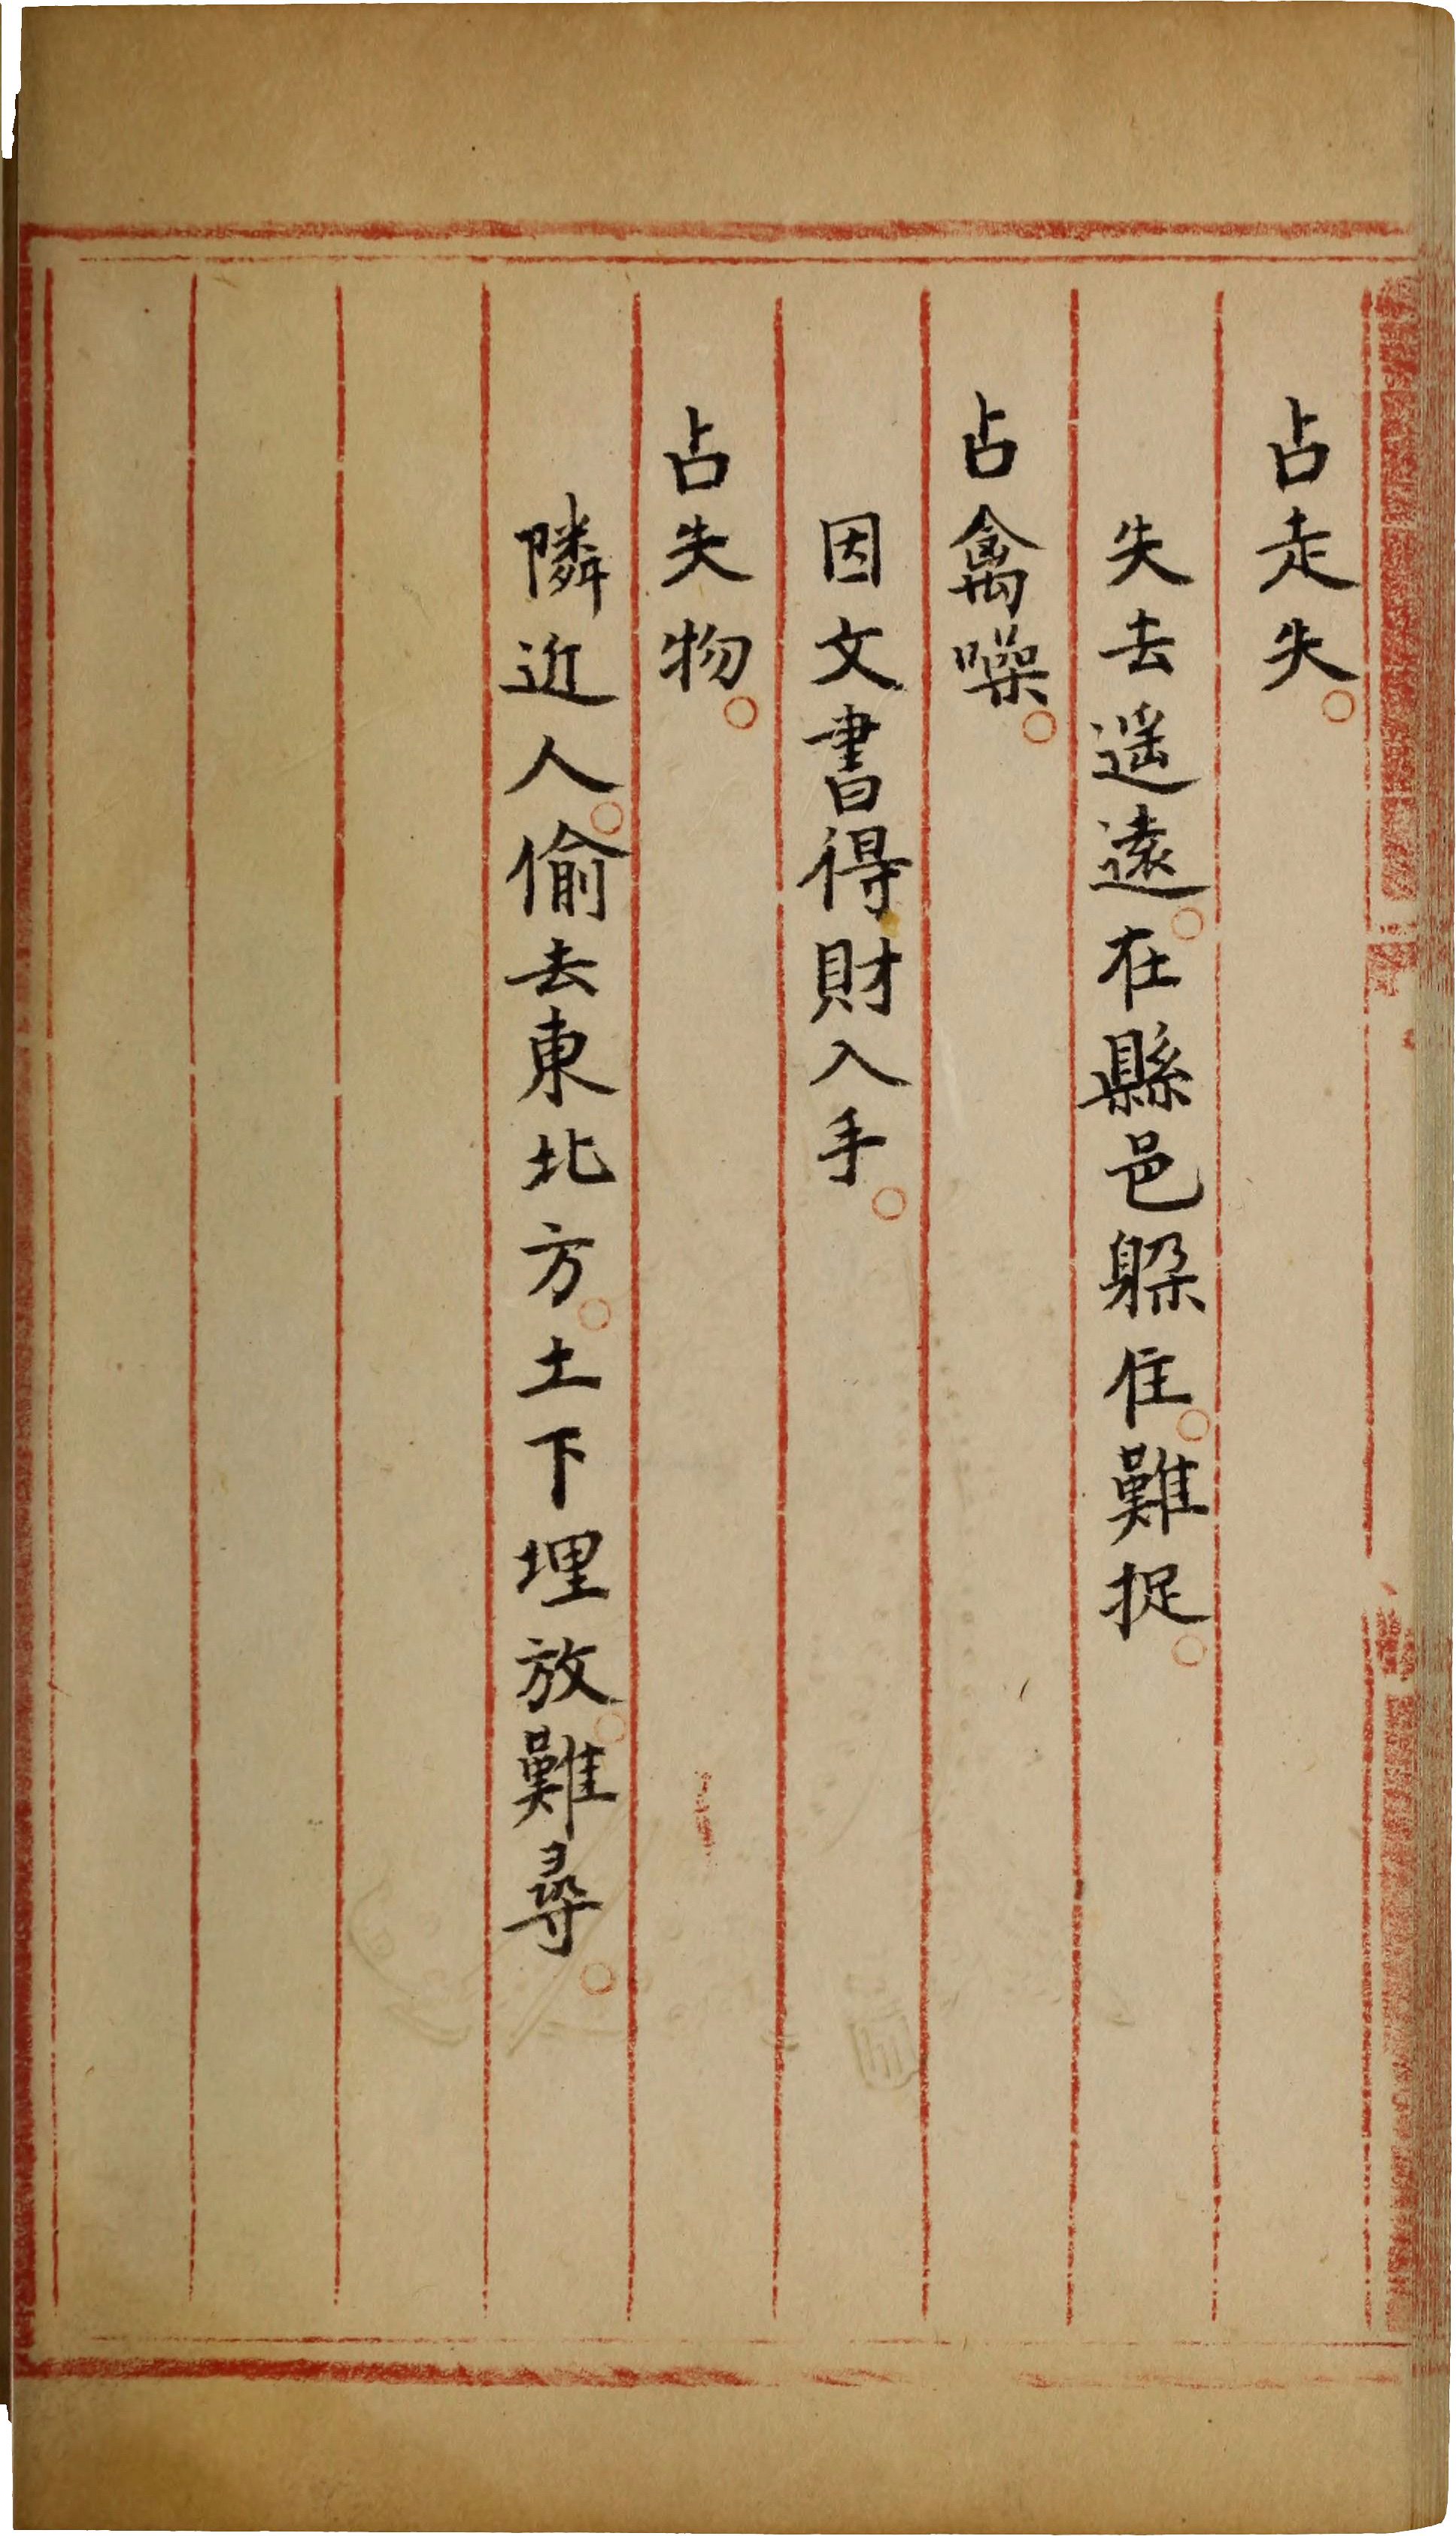 占走失。
失去遥遠。在縣邑躱住。難捉。
占禽噪。
因文書得財入手。
占失物。
隣近人。偷去東北方。土下埋放。難尋。